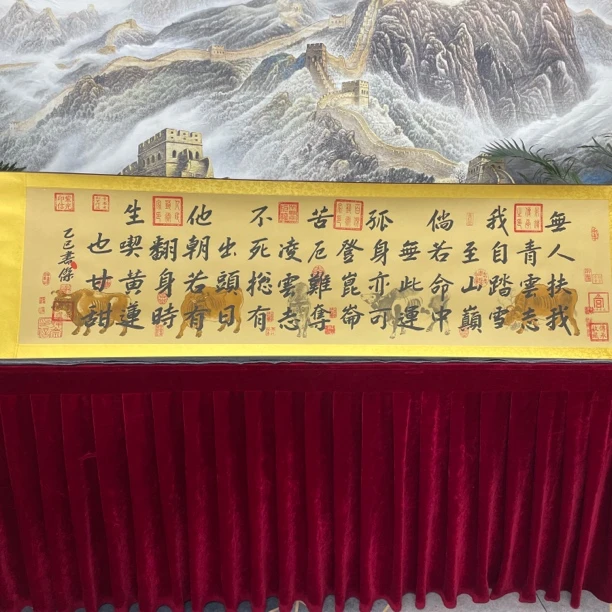 無人扶我
青雲志
我自踏雪
至山巔
倘若命中
無此運
孤身亦可
登崑崙
苦厄難奪
凌雲志
不死総有
出頭日
他朝若有
翻身時
生喫黄蓮
也甘甜
乙巳